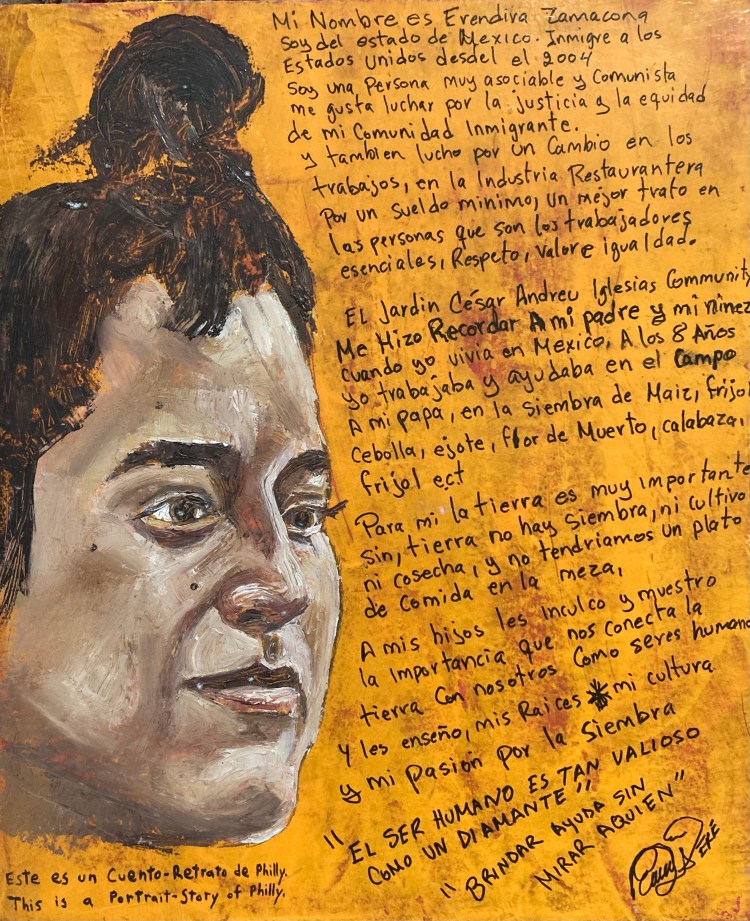 Mi Nombre es Erendira Zamacona
Soy del estado de Mexico. Inmigre a los
Estados Unidos desdel el 2004
Soy una Persona muy asociable y Comunista
me gusta luchar por la justicia y la equidad
de mi Comunidad Inmigrante.
y tambien lucho por un Cambio en los
trabajos, en la Industria Restaurantera
Por un sueldo minimo, un mejor trato en
las personas que son los trabajadores
esenciales, Respeto, valor e igualdad.
EL Jardin César Andreu Iglesias Community
Me Hizo Recordar A mi padre y mi niñez
cuando yo vivia en Mexico. A los 8 Años
yo trabajaba y ayudaba en el Campo
A mi papa, en la siembra de Maiz, frijol
Cebolla, ejote, flor de Muerto, calabaza,
frijol ect
Para mi la tierra es muy importante
sin, tierra no hay siembra, ni cultivo
ni cosecha, y no tendriamos un plato
de Comida en la meza,
A mis hijos les inculco y muestro
la importancia que nos conecta la
tierra con nosotros como seres humano
y les enseño, mis Raices mi cultura
y mi pasión por la siembra
"EL SER HUMANO ES TAN VALIOSO
COMO UN DIAMANTE"
"BRINDAR AYUDA SIN
MIRAR AQUIEN"
Este es un Cuento-Retrato de Philly.
This is a Portrait-Story of Philly.